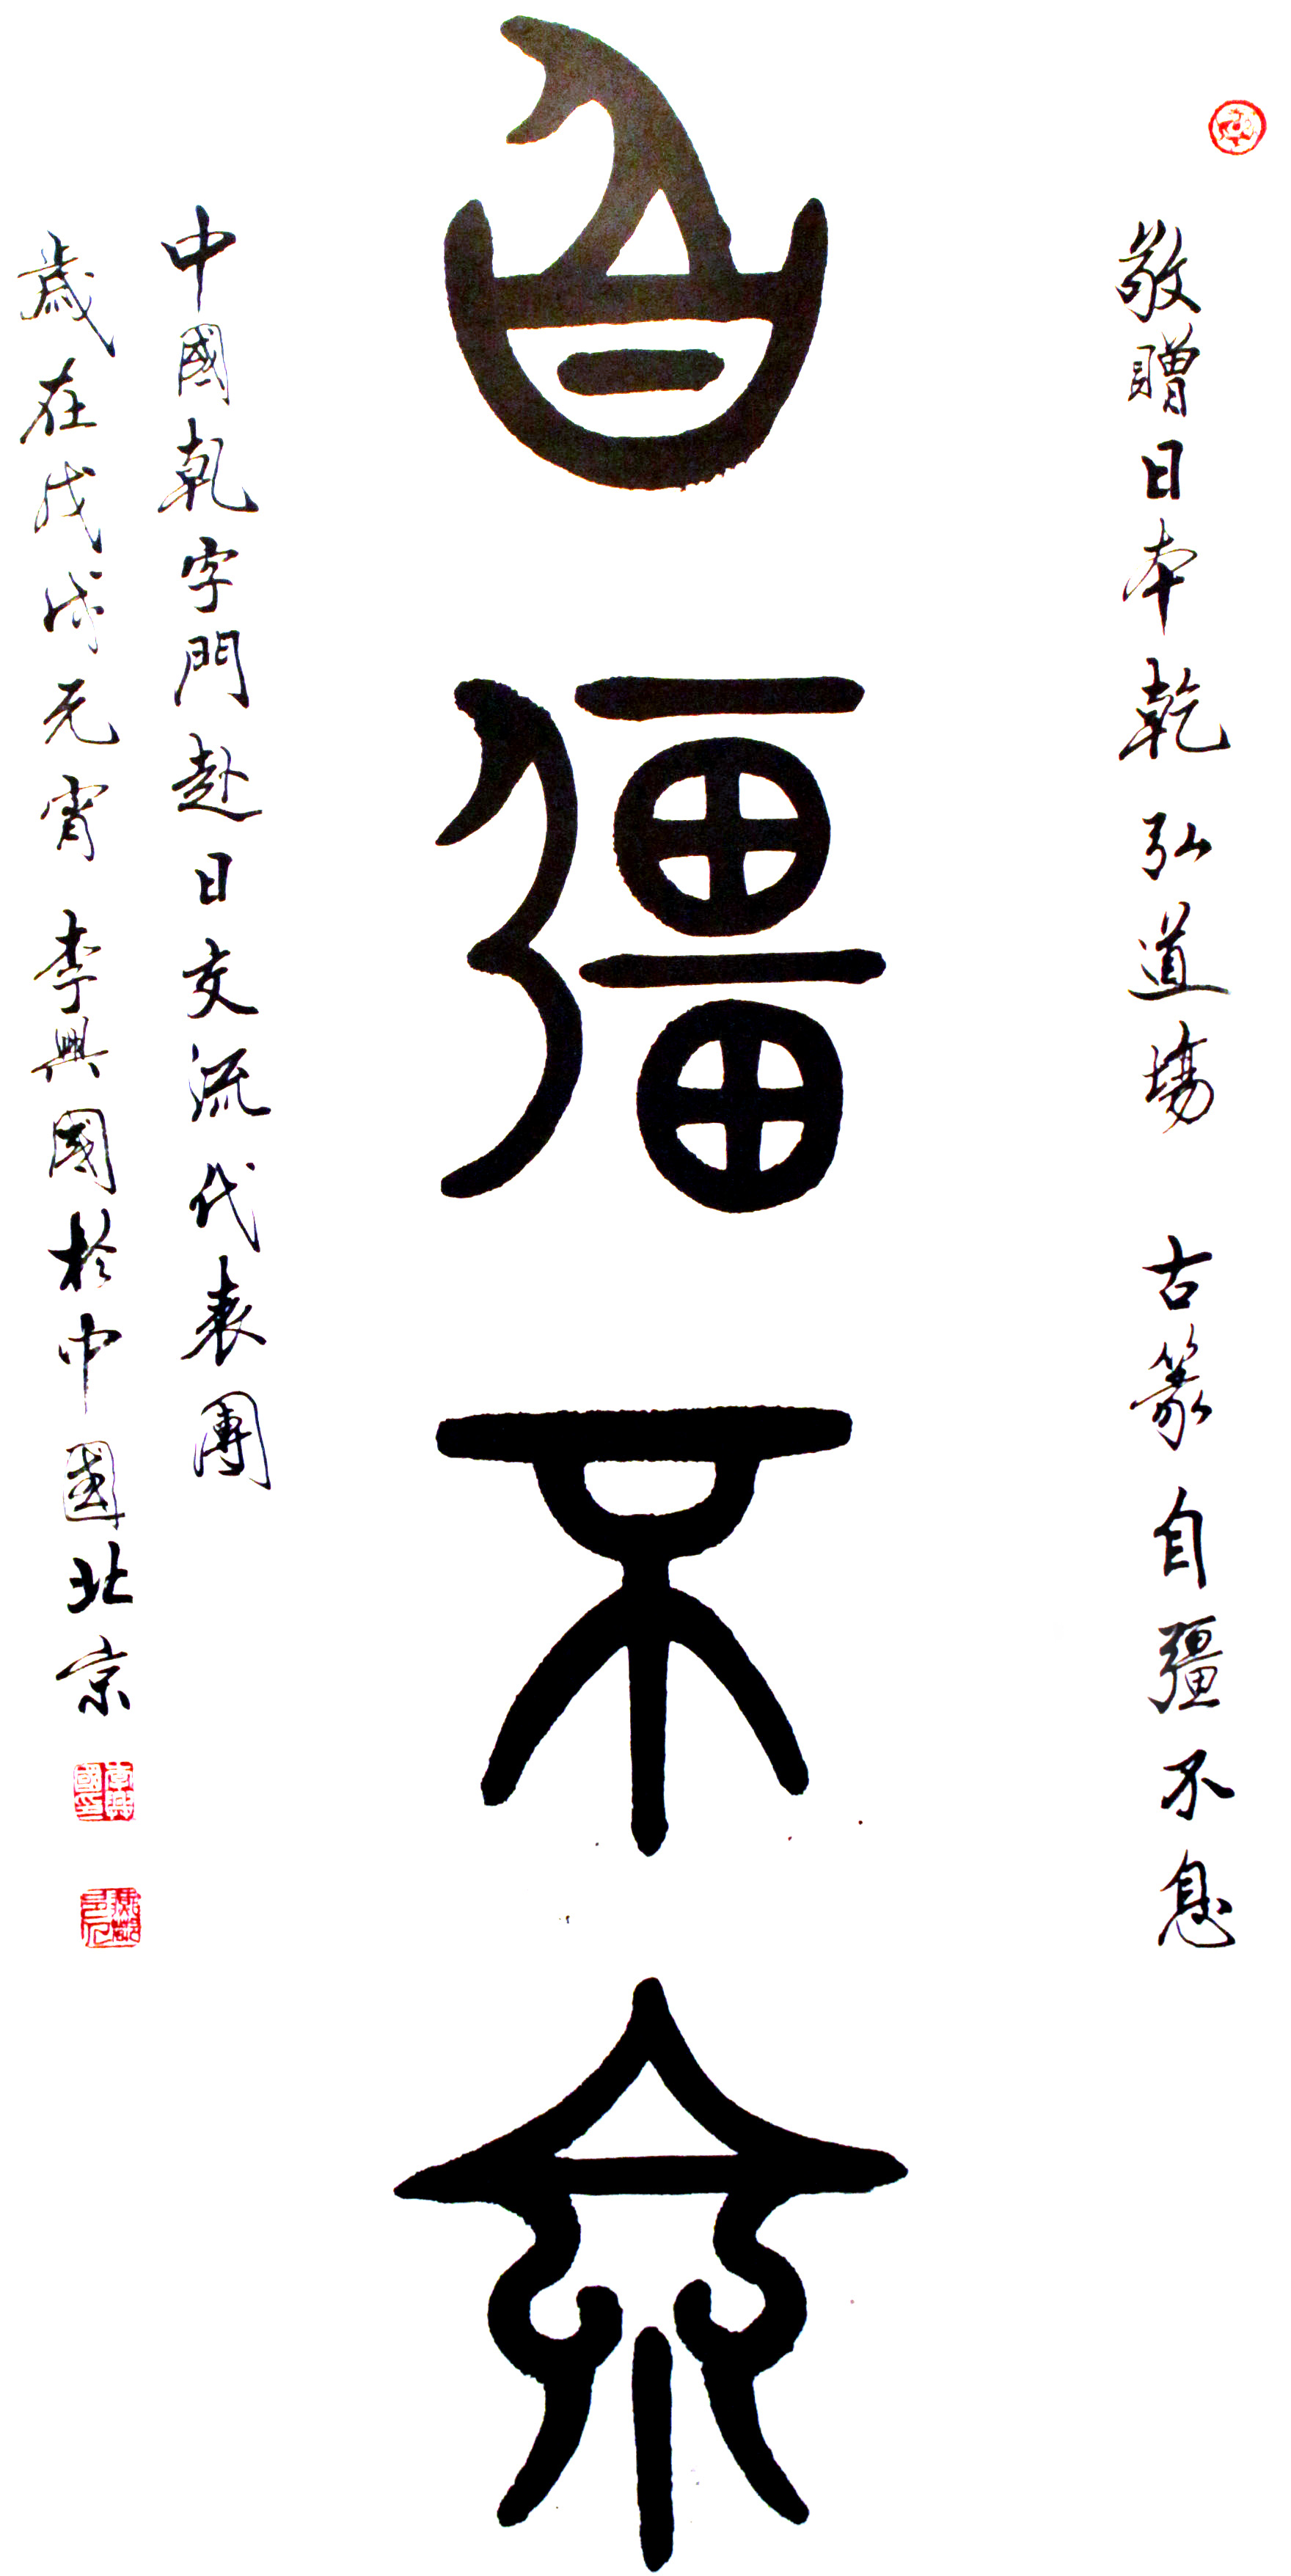 敬贈日本乾弘道場 古篆自彊不息
自彊不息
中國乾字門赴日交流代表團
歲在戊戌元宵 李興國於中國北京
李興國印